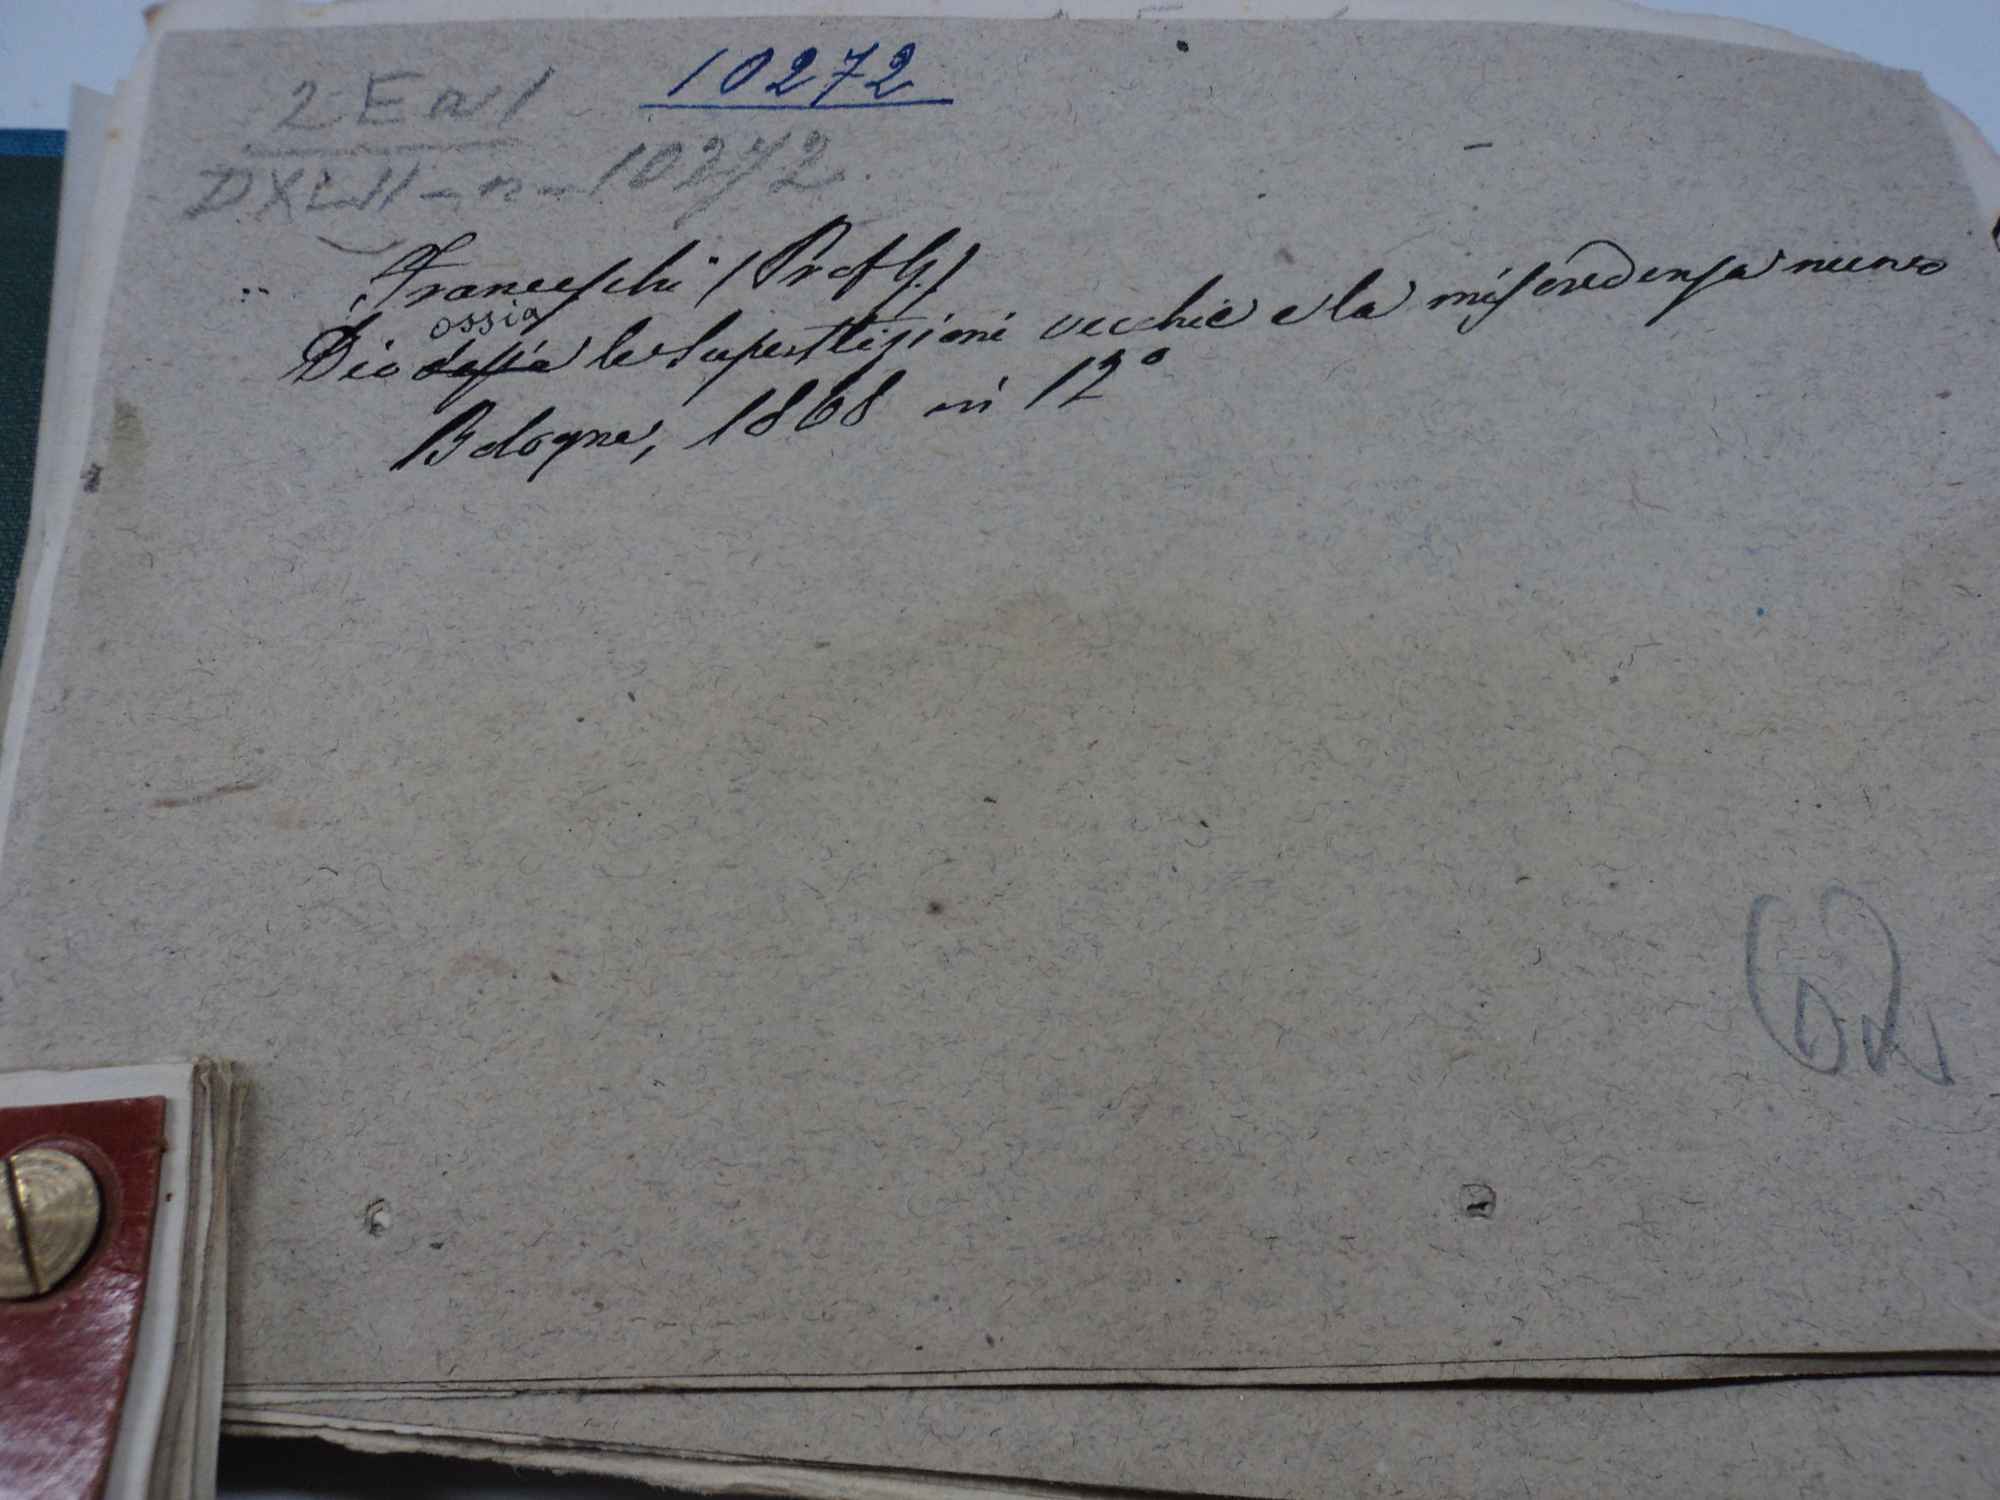 10272
2 E a 1
D.XLVI - n - 10272.
Franceschi (Prof G.)
ossia
Dio ossia le Superstizioni vecchie e la miscredenza nuova
Bologna, 1868 in 12°